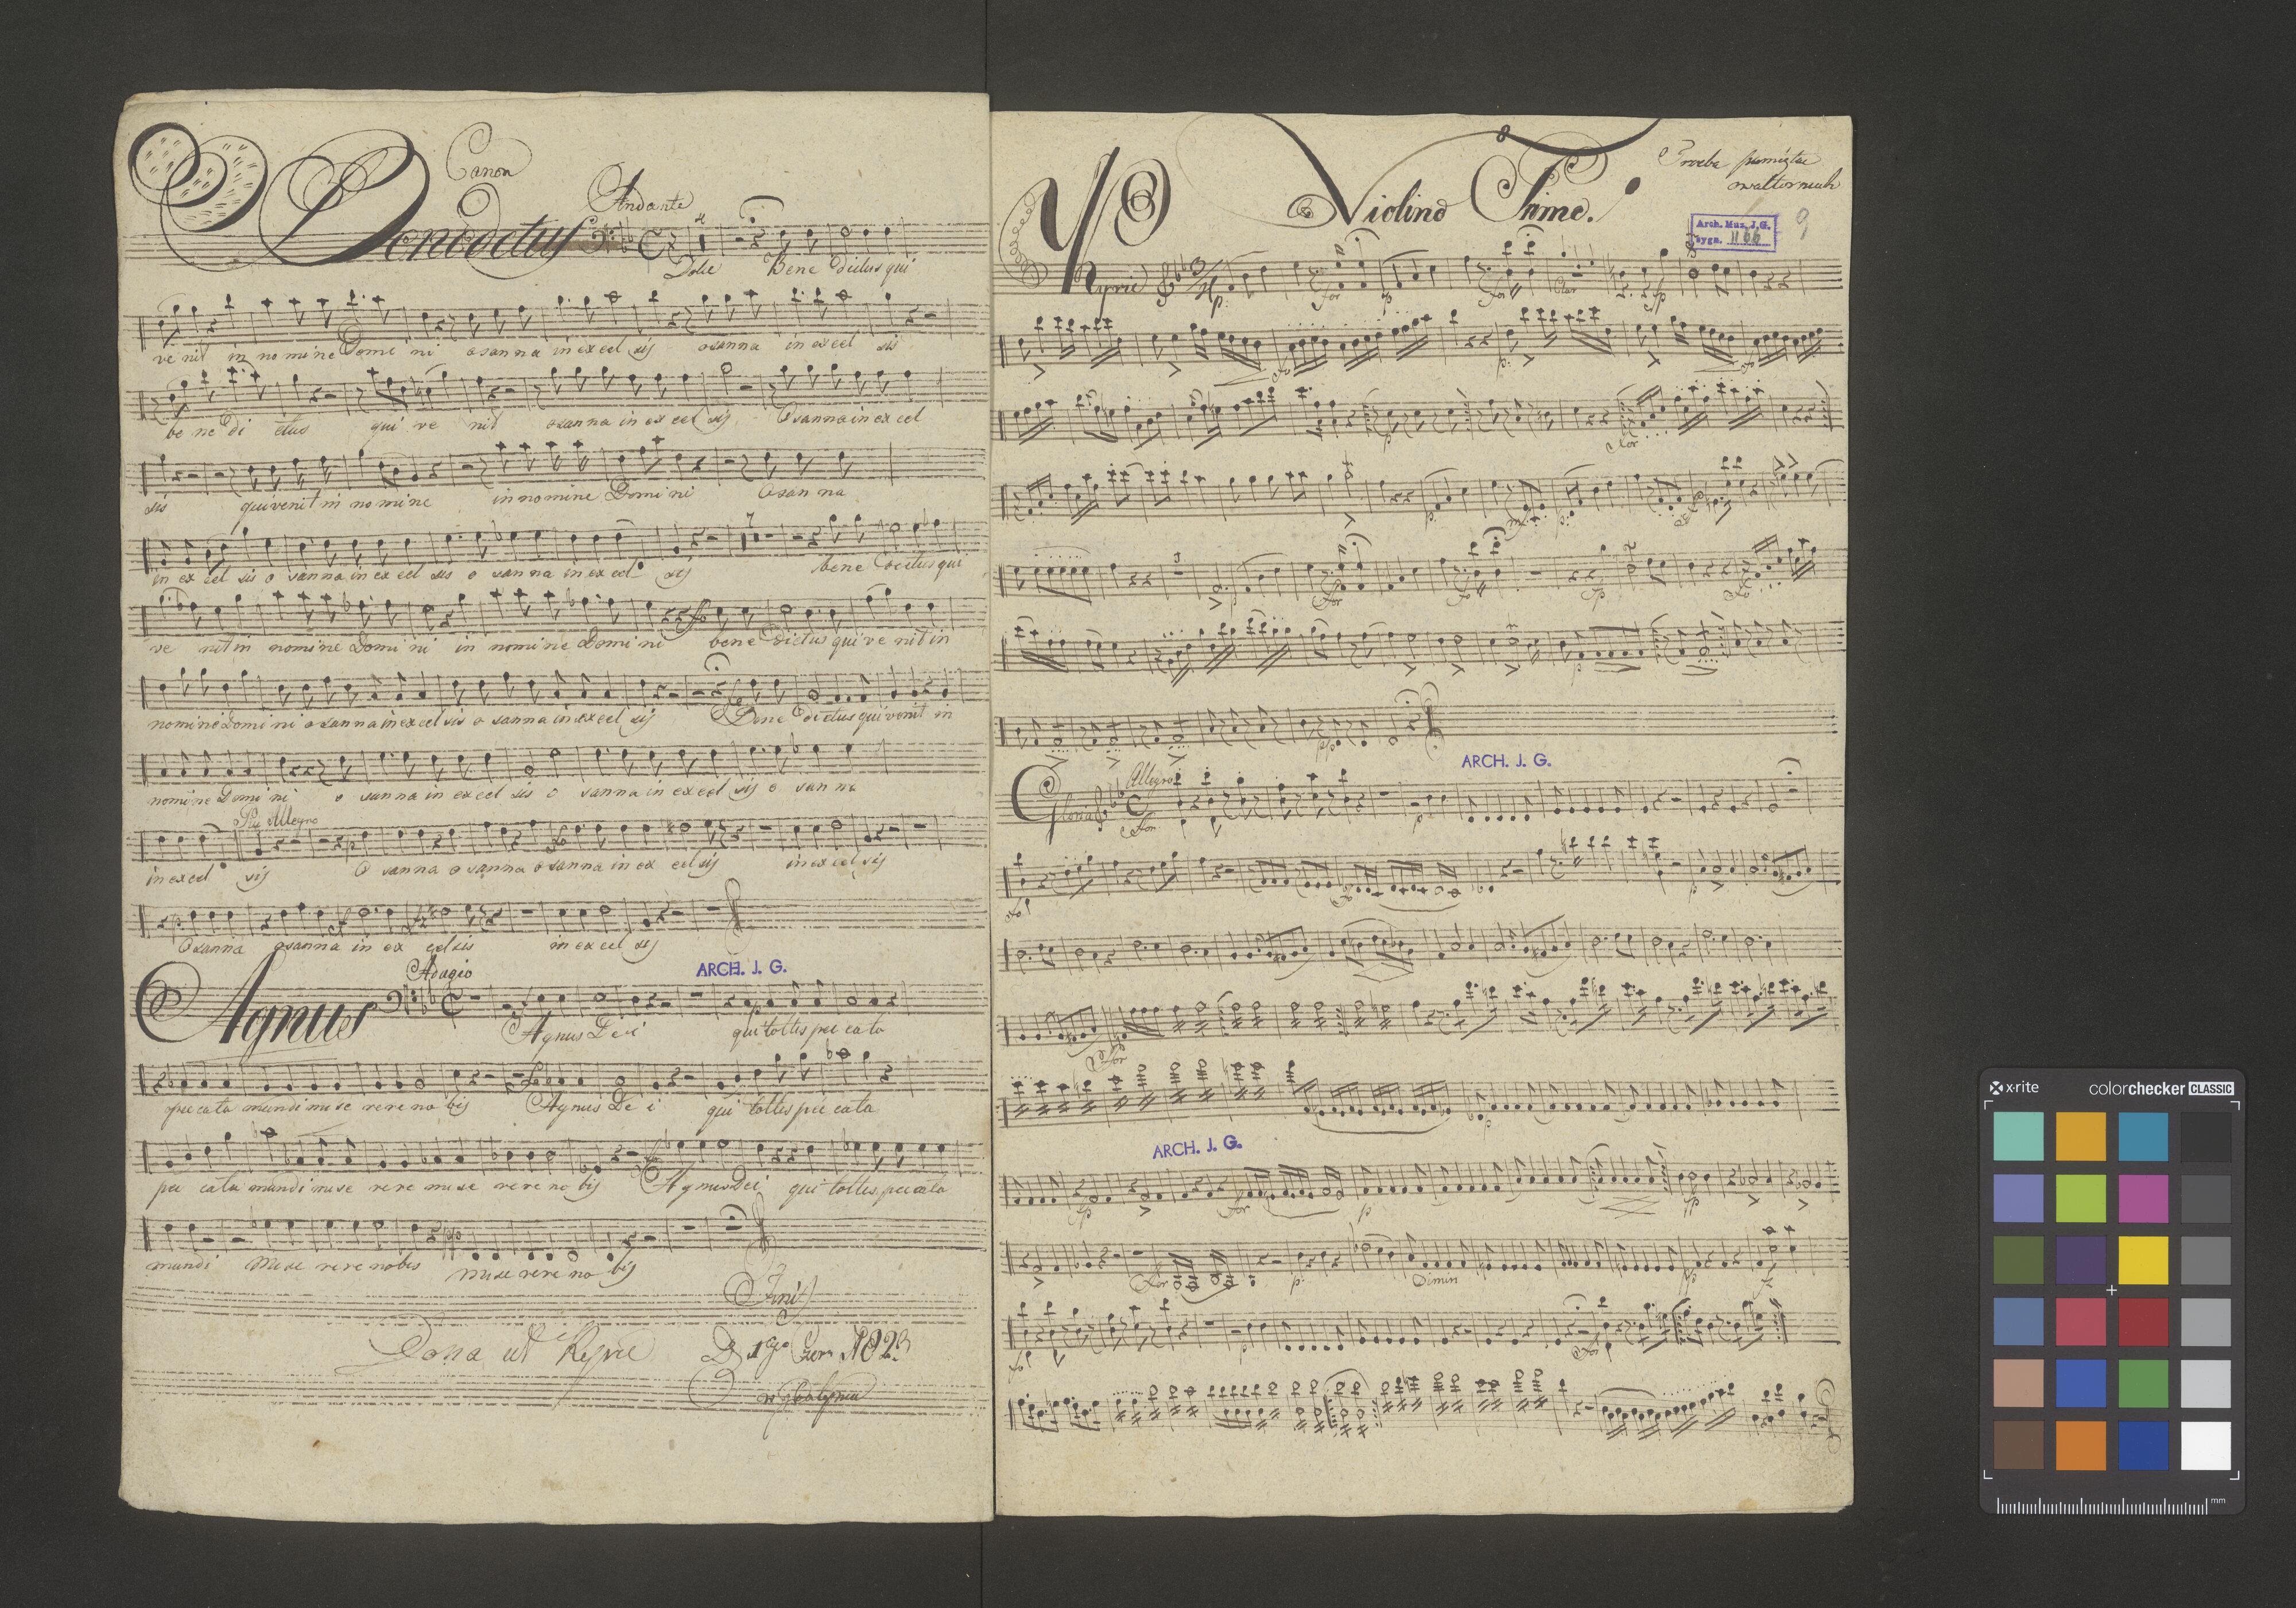 Canon
Andante
Benedictus
Dolce Bene dictus qui
ve nit in no mine Domi ni osanna in excel sis osanna in excel sis
be ne di ctus qui ve nit osanna in ex cel sis Osanna in ex cel
sis qui venit in no mine in nomine Domi ni Osan na
in ex cel sis o sanna in ex cel sis o sanna in ex cel sis bene dictus qui
ve nit in nomine Domi ni in nomine Domi ni bene dictus qui ve nit in
nomine Domi ni o sanna in excel sis o sanna in excel sis Bene dictus qui venit in
nomine Domi ni o sanna in excel sis o sanna in excel sis o san na
Piu Allegro
in excel sis O sanna o sanna o sanna in ex cel sis in excel sis
Osanna osanna in ex cel sis in excel sis
Adagio
ARCH. J. G.
Agnus
Agnus Dei qui tollis pec cata
peccata mundi mise rere no bis Agnus De i qui tollis pec cata
pec cata mundi mise rere mise rere no bis Agnus Dei qui tollis peccata
mundi Mise rere nobis mise rere no bis
Finis
Dona ut Kyrie
1823
Violino Primo.
9
Arch. Muz. J. G.
sygn. 1166
Kyrie
p: for p for fp
p:
p For
p. p:
for fo fp fo
p
pp
ARCH. J. G.
Allegro
Gloria For p
fo p
for
p
ARCH. J. G.
fp for p fp
For p: Dimin pp f
fo p for
x·rite colorchecker CLASSIC
mm